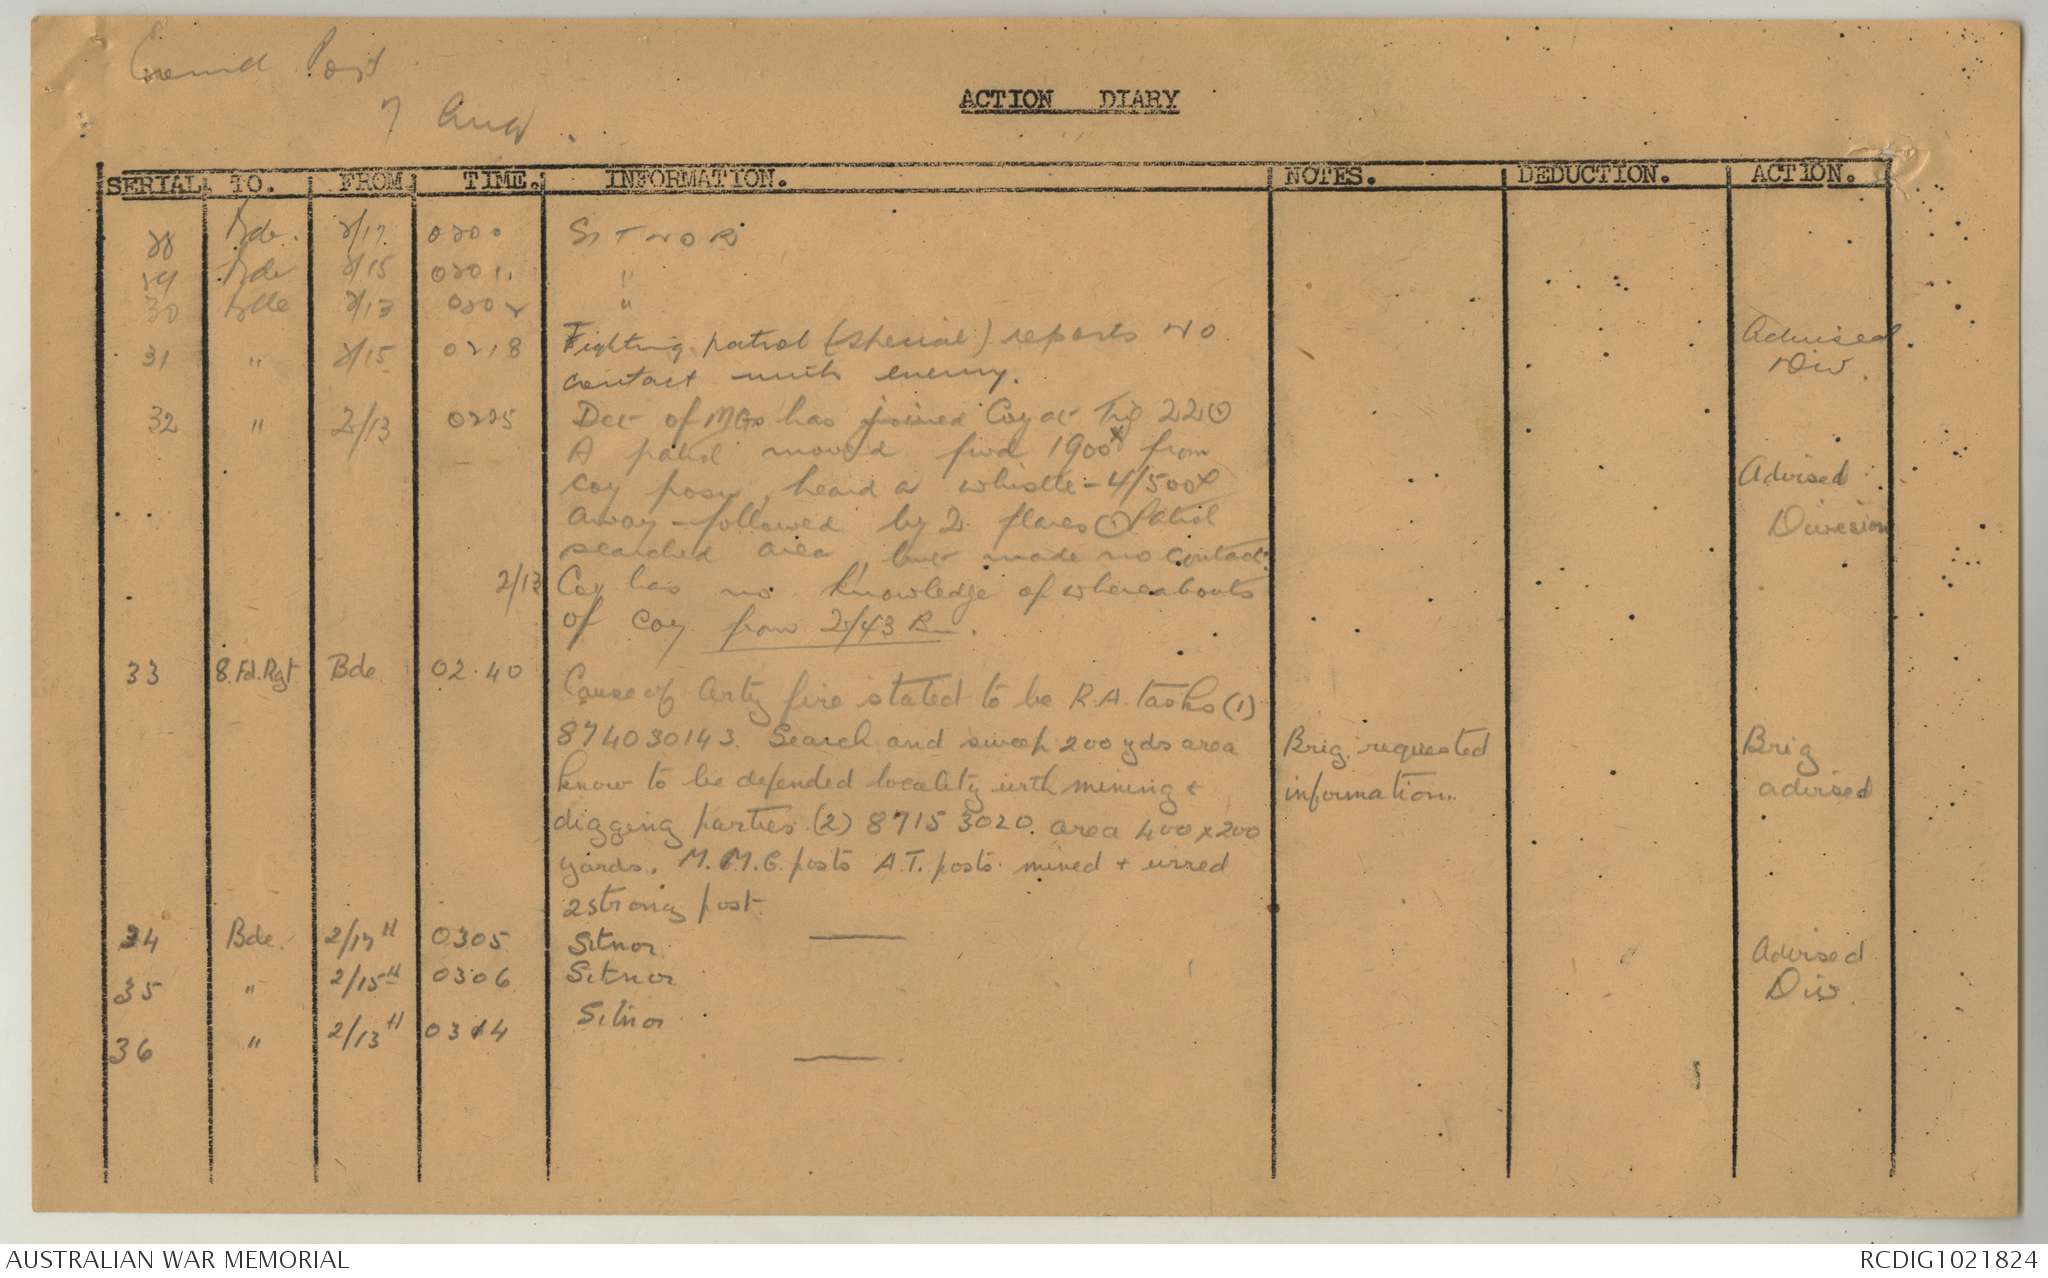 7 Aug.
ACTION DIARY
SERIAL TO. FROM TIME. INFORMATION. NOTES. DEDUCTION. ACTION.
28 Bde. 2/17 0200 SITNOR
29 Bde 2/15 0201 "
30 Bde 2/13 0202 "
31 " 2/15 0218 Fighting patrol (special) reports NO Advised
contact with enemy. Div.
32 " 2/13 0225 Det of MGs has joined Coy at Trig 22
A patrol moved fwd 1900x from
Coy posn, heard a whistle - 4/500x Advised
away - followed by 2 flares Patrol Division
searched area, but made no contact.
2/13 Coy has no knowledge of whereabouts
of Coy from 2/43 Bn.
33 8.Fd.Rgt Bde 02.40 Cause of Arty fire stated to be R.A. tasks (1)
874030143. Search and sweep 200 yds area Brig. requested Brig
know to be defended locality with mining + information. advised
digging parties. (2) 8715 3020. area 400 x 200
yards. M.M.G. posts A.T. posts mined + wired
2 strong post.
34 Bde. 2/17 H 0305 Sitnor Advised
35 " 2/15 H 0306 Sitnor Div.
36 " 2/13 H 0314 Sitnor
AUSTRALIAN WAR MEMORIAL RCDIG1021824